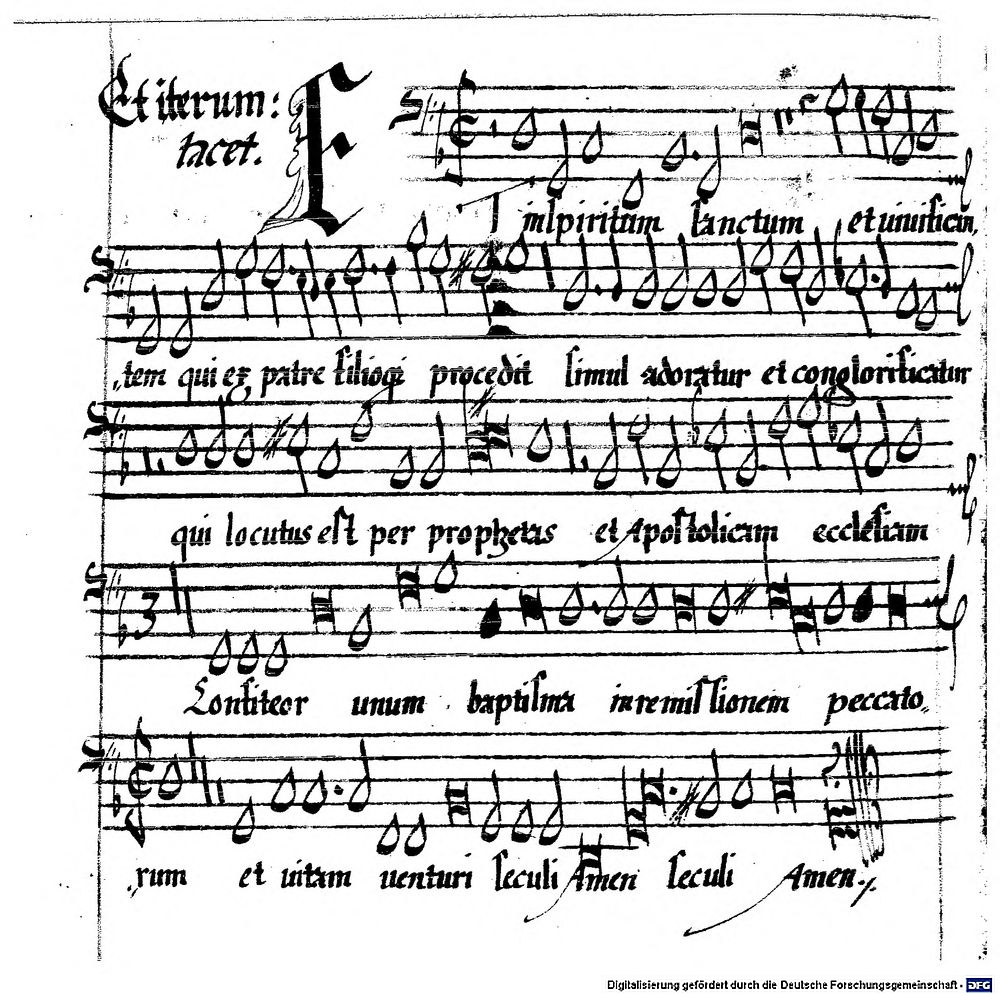 Et iterum:
tacet.
ET in spiritum sanctum et uiuifican,
,tem qui ex patre filioqз procedit simul adoratur et conglorificatur
qui locutus est per prophetas et Apostolicam ecclesiam
3
Confiteor unum baptisma in remissionem peccato,
,rum et uitam uenturi seculi Amen seculi Amen.
Digitalisierung gefördert durch die Deutsche Forschungsgemeinschaft - DFG